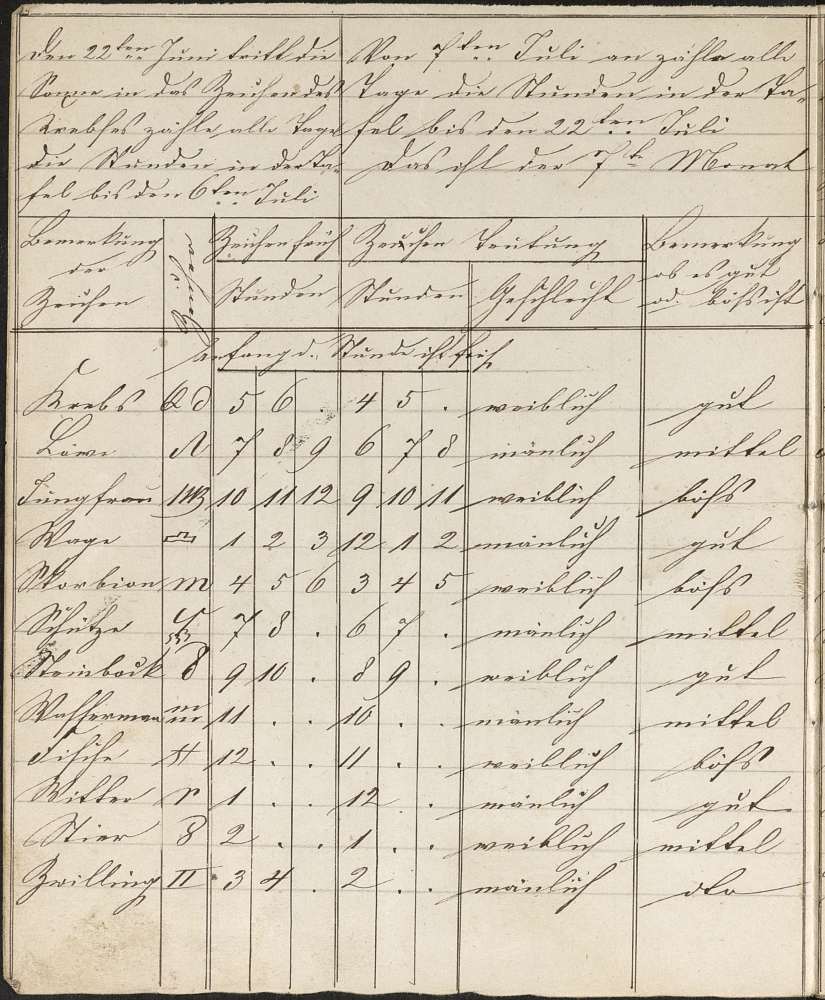 Den 22ten Juni tritt die
Sonne in das Zeichen des
Krebses zähle alle Tage
die Stunden in der Ta-
fel bis den 6ten Juli
Von 7ten Juli an zähle alle
Tage die Stunden in der Ta-
fel bis den 22ten Juli
Das ist der 7te Monat
Bemerkung
der
Zeichen
Zeichen
Zeichen früh
Stunden
Zeichen Deutung
Stunden
Geschlecht
Bemerkung
ob es gut
od. böhs ist
Anfang d. Stunde ist früh
Krebs 5 6 . 4 5 . weiblich gut
Löwe ♌ 7 8 9 6 7 8 mänlich mittel
Jungfrau ♍ 10 11 12 9 10 11 weiblich böhs
Wage ♎ 1 2 3 12 1 2 mänlich gut
Skorbion ♏ 4 5 6 3 4 5 weiblich böhs
Schütze 7 8 . 6 7 . mänlich mittel
Steinbock 9 10 . 8 9 . weiblich gut
Wasserman ♒ 11 . . 10 . . mänlich mittel
Fische ♓ 12 . . 11 . . weiblich böhs
Witter ♈ 1 . . 12 . . mänlich gut
Stier ♉ 2 . . 1 . . weiblich mittel
Zwilling ♊ 3 4 . 2 . . mänlich dto